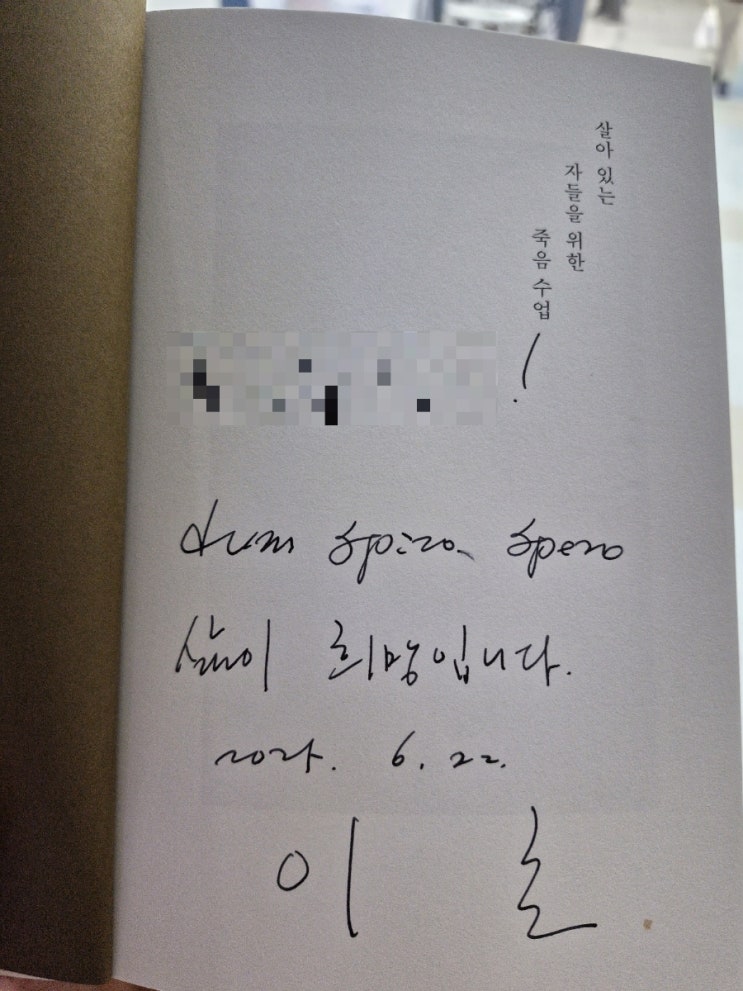 살아 있는
자들을 위한
죽음 수업
!
dum spiro, spero
삶이 희망입니다.
6. 22.
이 호